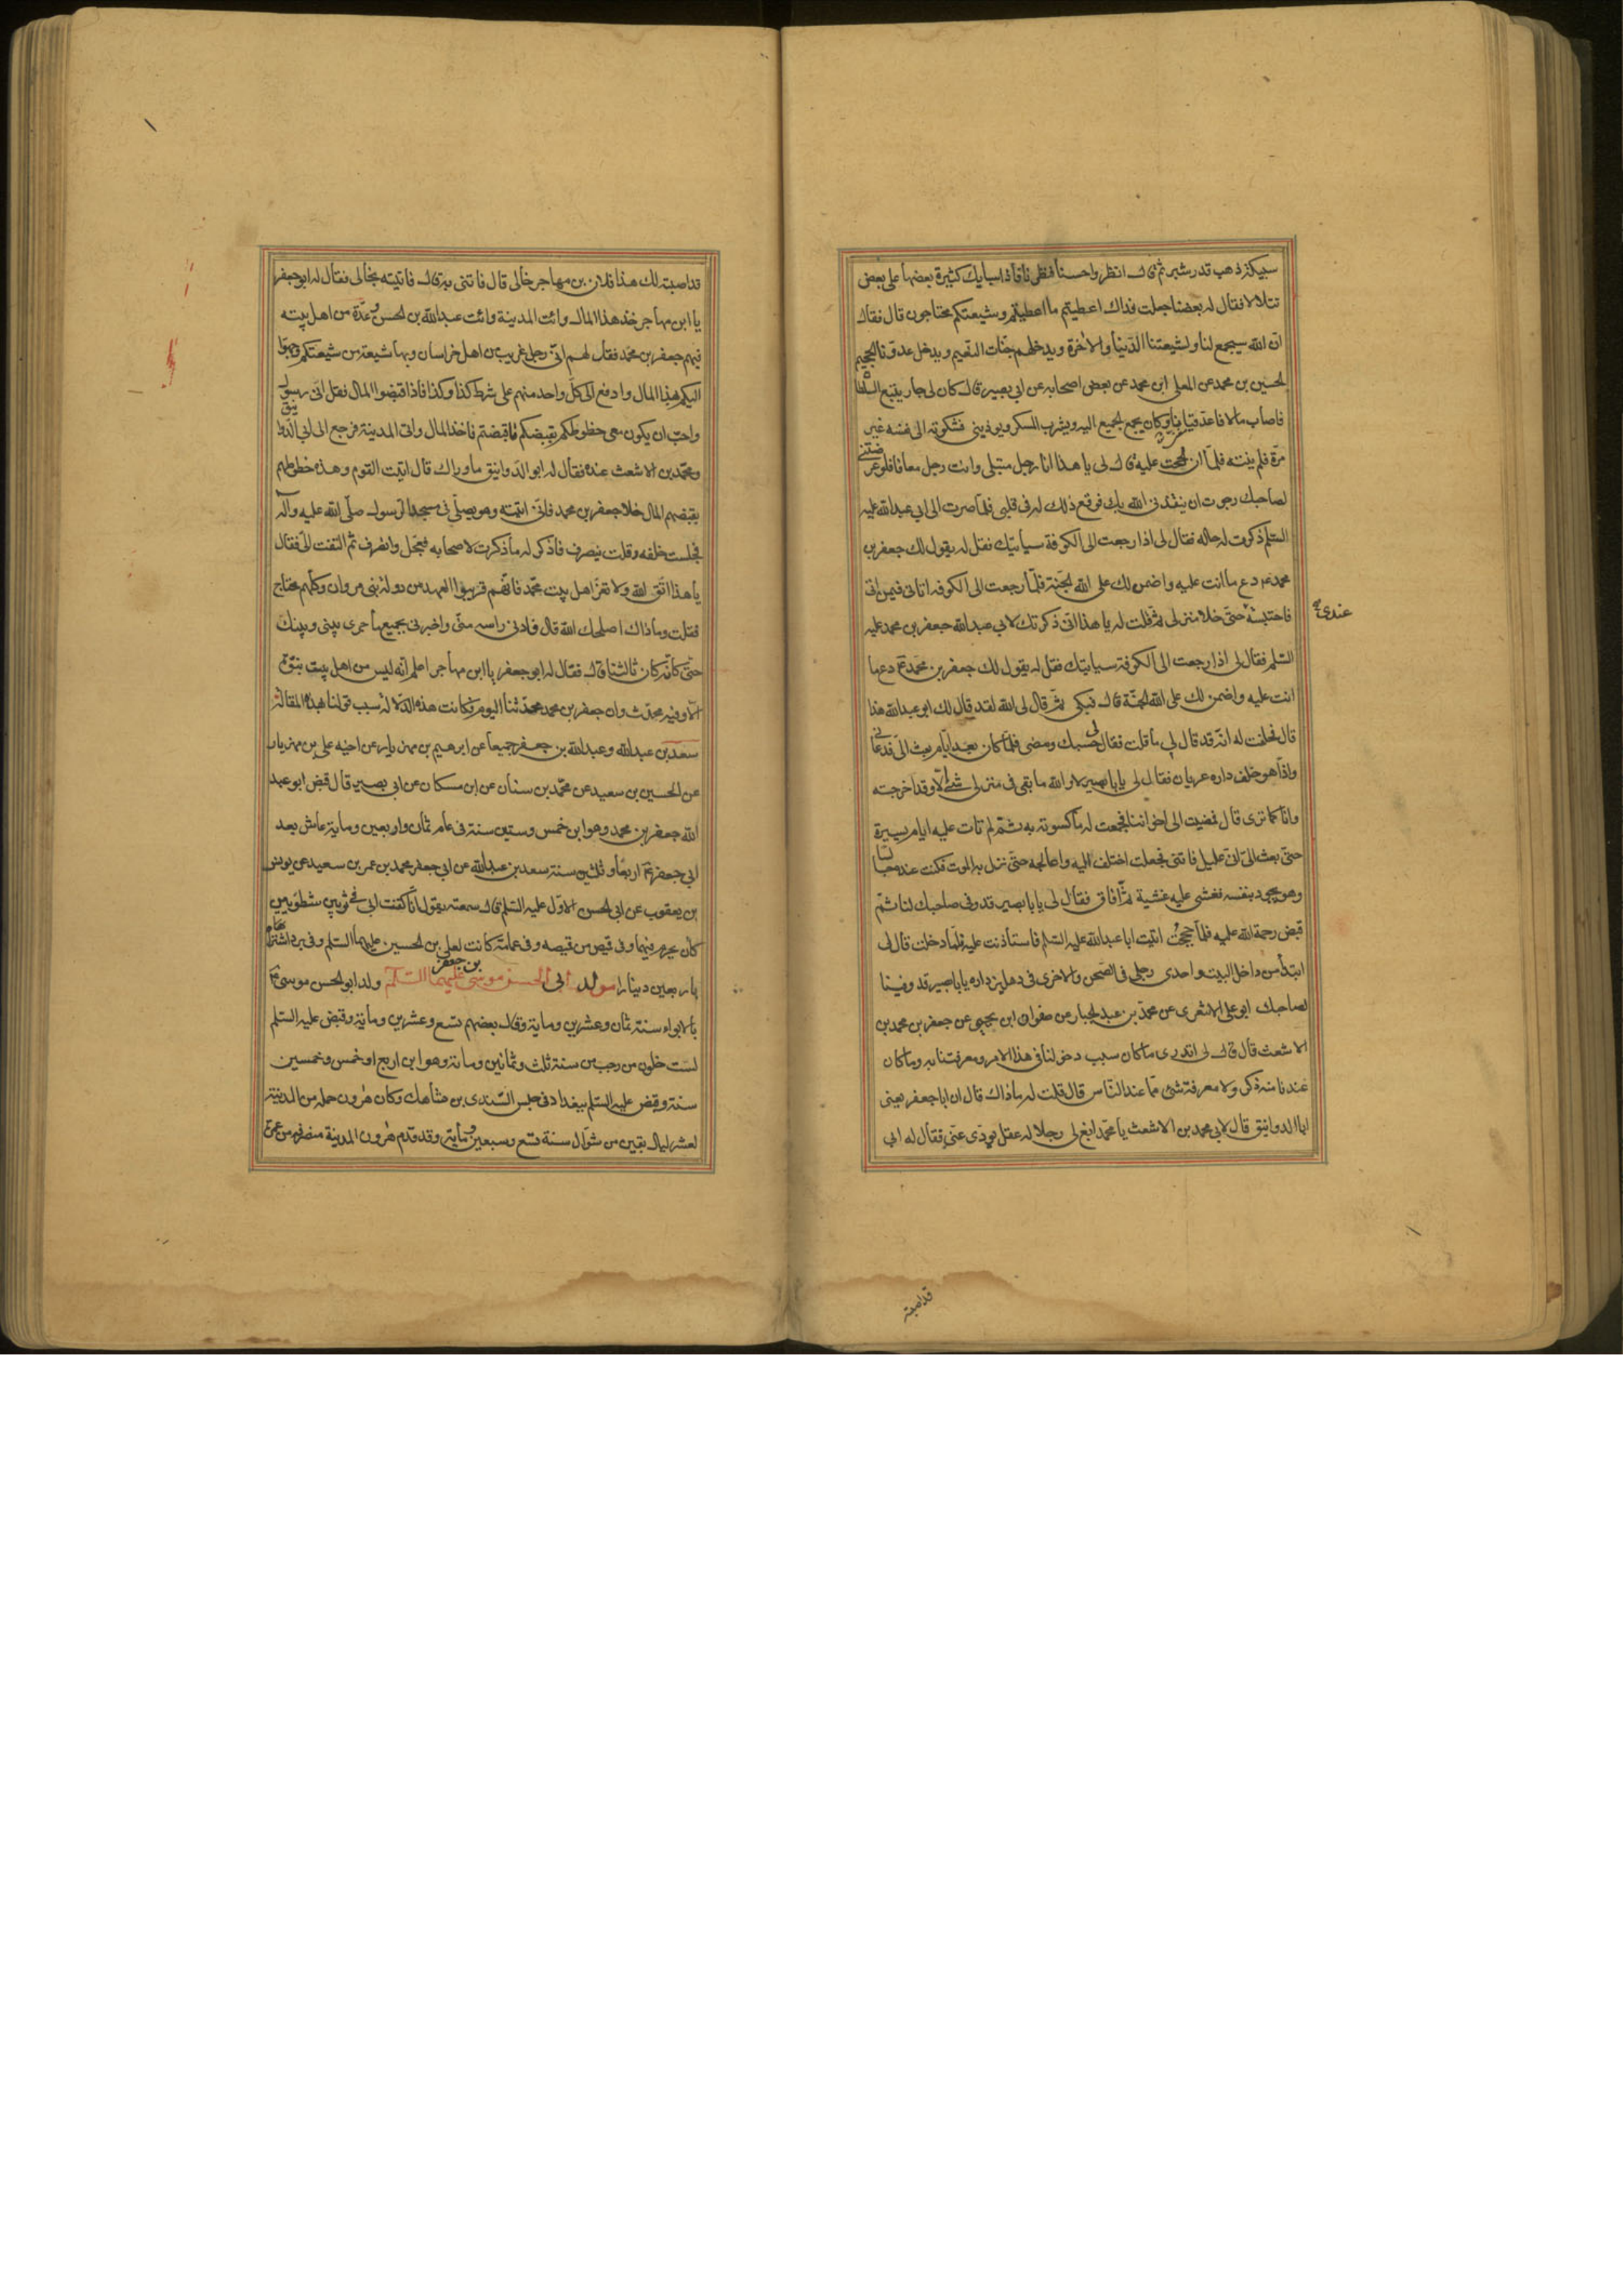 سبيكة ذهب قدر شبر ثم قال انظروا حسنا فنظرنا فاذا سبايك كثيرة بعضها على بعض
تتلالا فقال له بعضنا جعلت فداك اعطيتم ما اعطيتم وشيعتكم محتاجون قال فقال
ان الله سيجمع لنا ولشيعتنا الدنيا والاخرة ويدخلهم جنات النعيم ويدخل عدونا الجحيم
الحسين بن محمد عن المعلى ابن محمد عن بعض اصحابه عن ابي بصير قال كان لي جار يتبع السلطان
فاصاب مالا فاعد قيانا وكان يجمع الجميع اليه ويشرب المسكر ويوذيني فشكوته الى نفسه غير
مرة فلم ينته فلما ان الححت عليه قال لي يا هذا انا رجل مبتلى وانت رجل معافا فلو عرضتني
لصاحبك رجوت ان ينقذني الله بك فوقع ذلك له في قلبي فلما صرت الى ابي عبد الله عليه
السلم ذكرت له حاله فقال لي اذا رجعت الى الكوفة سياتيك فقل له يقول لك جعفر بن
محمد دع ما انت عليه واضمن لك على الله الجنة فلما رجعت الى الكوفه اتاني فيمن اتى
فاحتبسته حتى خلا منزلي ثم قلت له يا هذا اني ذكرتك لابي عبد الله جعفر بن محمد عليه
عندي
السلم فقال لي اذا رجعت الى الكوفة سياتيك فقل له يقول لك جعفر بن محمد دع ما
انت عليه واضمن لك على الله الجنة قال فبكى ثم قال لي الله لقد قال لك ابو عبد الله هذا
قال فحلفت له انه قد قال لي ما قلت فقال لي حسبك ومضى فلما كان بعد ايام بعث الي فدعاني
واذا هو خلف داره عريان فقال لي يابا بصير لا والله ما بقي في منزلي شئ الا وقد اخرجته
وانا كما ترى قال فمضيت الى اخواننا فجمعت له ما كسوته به ثم لم تات عليه ايام يسيرة
حتى بعث الي اني عليل فاتني فجعلت اختلف اليه واعالجه حتى نزل به الموت فكنت عنده جالسا
وهو يجود بنفسه فغشي عليه غشية ثم افاق فقال لي يابا بصير قد وفى صاحبك لنا ثم
قبض رحمة الله عليه فلما حججت اتيت ابا عبد الله عليه السلم فاستاذنت عليه فلما دخلت قال لي
ابتدأ من داخل البيت واحدى رجلي في الصحن والاخرى في دهليز داره يابا بصير قد وفينا
لصاحبك ابو علي الاشعري عن محمد بن عبد الجبار عن صفوان ابن يحيى عن جعفر بن محمد بن
الاشعث قال قال لي اتدري ما كان سبب دخولنا في هذا الامر ومعرفتنا به وما كان
عندنا منه ذكر ولا معرفة شئ مما عند الناس قال قلت له ما ذاك قال ان ابا جعفر يعني
ابا الدوانيق قال لابي محمد بن الاشعث يا محمد ابغ لي رجلا له عقل يودي عني فقال له ابي
قد اصبته
قد اصبته لك هذا فلان بن مهاجر خالي قال فاتني به قال فاتيته بخالي فقال له ابو جعفر
يا ابن مهاجر خذ هذا المال وائت المدينة وائت عبد الله بن الحسن وعدة من اهل بيته
فيهم جعفر بن محمد فقل لهم اني رجل غريب من اهل خراسان وبها شيعة من شيعتكم وجهوا
اليكم بهذا المال وادفع الى كل واحد منهم على شرط كذا وكذا فاذا قبضوا المال فقل اني رسول
واحب ان يكون معي خطوطكم بقبضكم ما قبضتم فاخذ المال واتى المدينة فرجع الى ابي الدوانيق
ومحمد بن الاشعث عنده فقال له ابو الدوانيق ما وراك قال اتيت القوم وهذه خطوطهم
بقبضهم المال خلا جعفر بن محمد فاني اتيته وهو يصلي في مسجد الرسول صلى الله عليه وآله
فجلست خلفه وقلت ينصرف فاذكر له ما ذكرت لاصحابه فعجل وانصرف ثم التفت الي فقال
يا هذا اتق الله ولا تغر اهل بيت محمد فانهم قريبوا العهد من دولة بني مروان وكلهم محتاج
فقلت وما ذاك اصلحك الله قال فادنى راسه مني واخبرني بجميع ما جرى بيني وبينك
حتى كانه كان ثالثنا قال فقال له ابو جعفر يا ابن مهاجر اعلم انه ليس من اهل بيت نبوة
الا وفيه محدث وان جعفر بن محمد محدثنا اليوم وكانت هذه الدلالة سبب قولنا بهذه المقالة
سعد بن عبد الله وعبد الله بن جعفر جميعا عن ابرهيم بن مهزيار عن اخيه علي بن مهزيار
عن الحسين بن سعيد عن محمد بن سنان عن ابن مسكان عن ابي بصير قال قبض ابو عبد
الله جعفر بن محمد وهو ابن خمس وستين سنة في عام ثمان واربعين وماية عاش بعد
ابي جعفر ع اربعا وثلثين سنة سعد بن عبد الله عن ابي جعفر محمد بن عمر بن سعيد عن يونس
بن يعقوب عن ابي الحسن الاول عليه السلم قال سمعته يقول انا كفنت ابي في ثوبين شطويين
كان يحرم فيهما وفي قميص من قميصه وفي عمامة كانت لعلي بن الحسين عليهما السلم وفي برد اشتراه
باربعين دينارا مولد ابي الحسن موسى بن جعفر عليهما السلم ولد ابو الحسن موسى ع
بالابواء سنة ثمان وعشرين وماية وقال بعضهم تسع وعشرين وماية وقبض عليه السلم
لست خلون من رجب من سنة ثلث وثمانين وماية وهو ابن اربع او خمس وخمسين
سنة وقبض عليه السلم ببغداد في حبس السندي بن شاهك وكان هرون حمله من المدينة
لعشر ليال بقين من شوال سنة تسع وسبعين وماية وقد قدم هرون المدينة منصرفه من عمرة